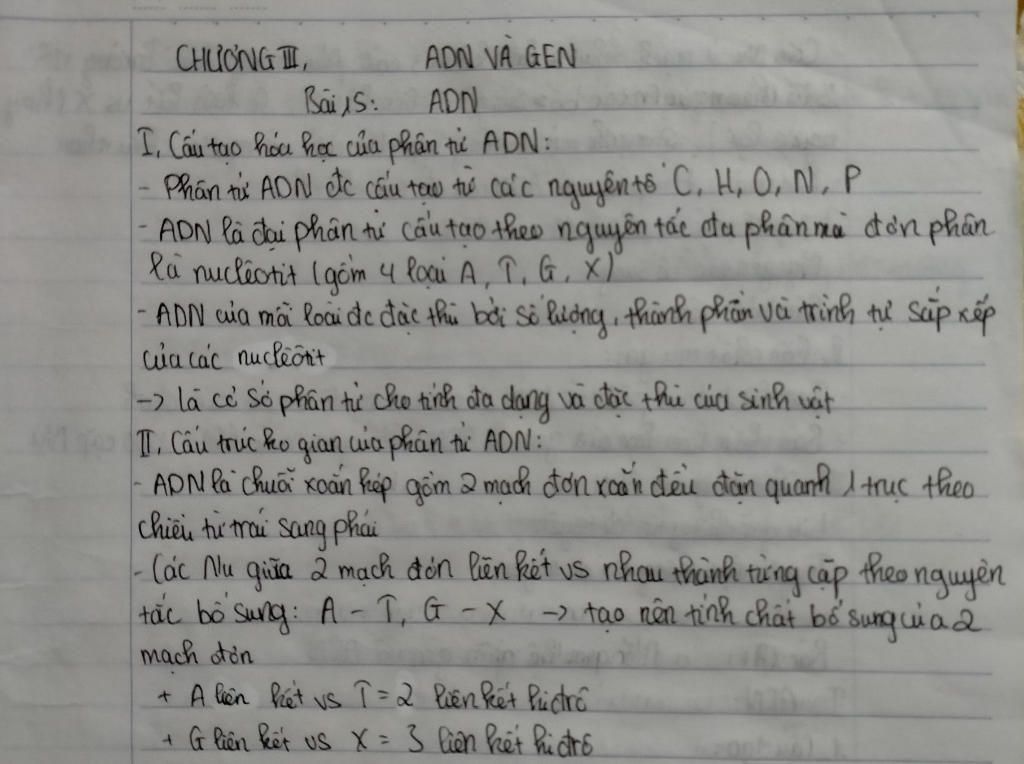 CHƯƠNG III, ADN VÀ GEN
Bài 15: ADN
I, Cấu tạo hóa học của phân tử ADN:
- Phân tử ADN đc cấu tạo từ các nguyên tố C, H, O, N, P
- ADN là đại phân tử cấu tạo theo nguyên tắc đa phân mà đơn phân
là nuclêotit (gồm 4 loại A, T, G, X)
- ADN của mỗi loài đc đặc thù bởi số lượng, thành phần và trình tự sắp xếp
của các nuclêôtit
-> là cơ sở phân tử cho tính đa dạng và đặc thù của sinh vật
II, Cấu trúc ko gian của phân tử ADN:
- ADN là chuỗi xoắn kép gồm 2 mạch đơn xoắn đều đặn quanh 1 trục theo
chiều từ trái sang phải
- Các Nu giữa 2 mạch đơn liên kết vs nhau thành từng cặp theo nguyên
tắc bổ sung: A - T, G - X -> tạo nên tính chất bổ sung của 2
mạch đơn
+ A liên kết vs T = 2 liên kết hiđrô
+ G liên kết vs X = 3 liên kết hiđrô